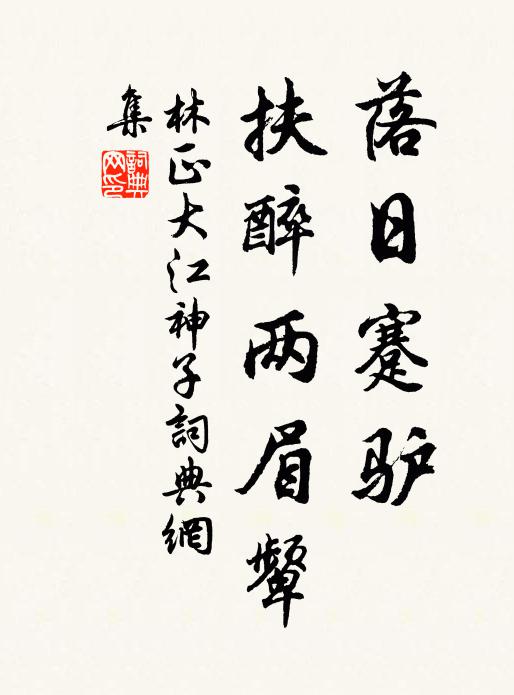 落日蹇驴
扶醉两眉颦
林正大江神子詞典網
集
詞典
网印